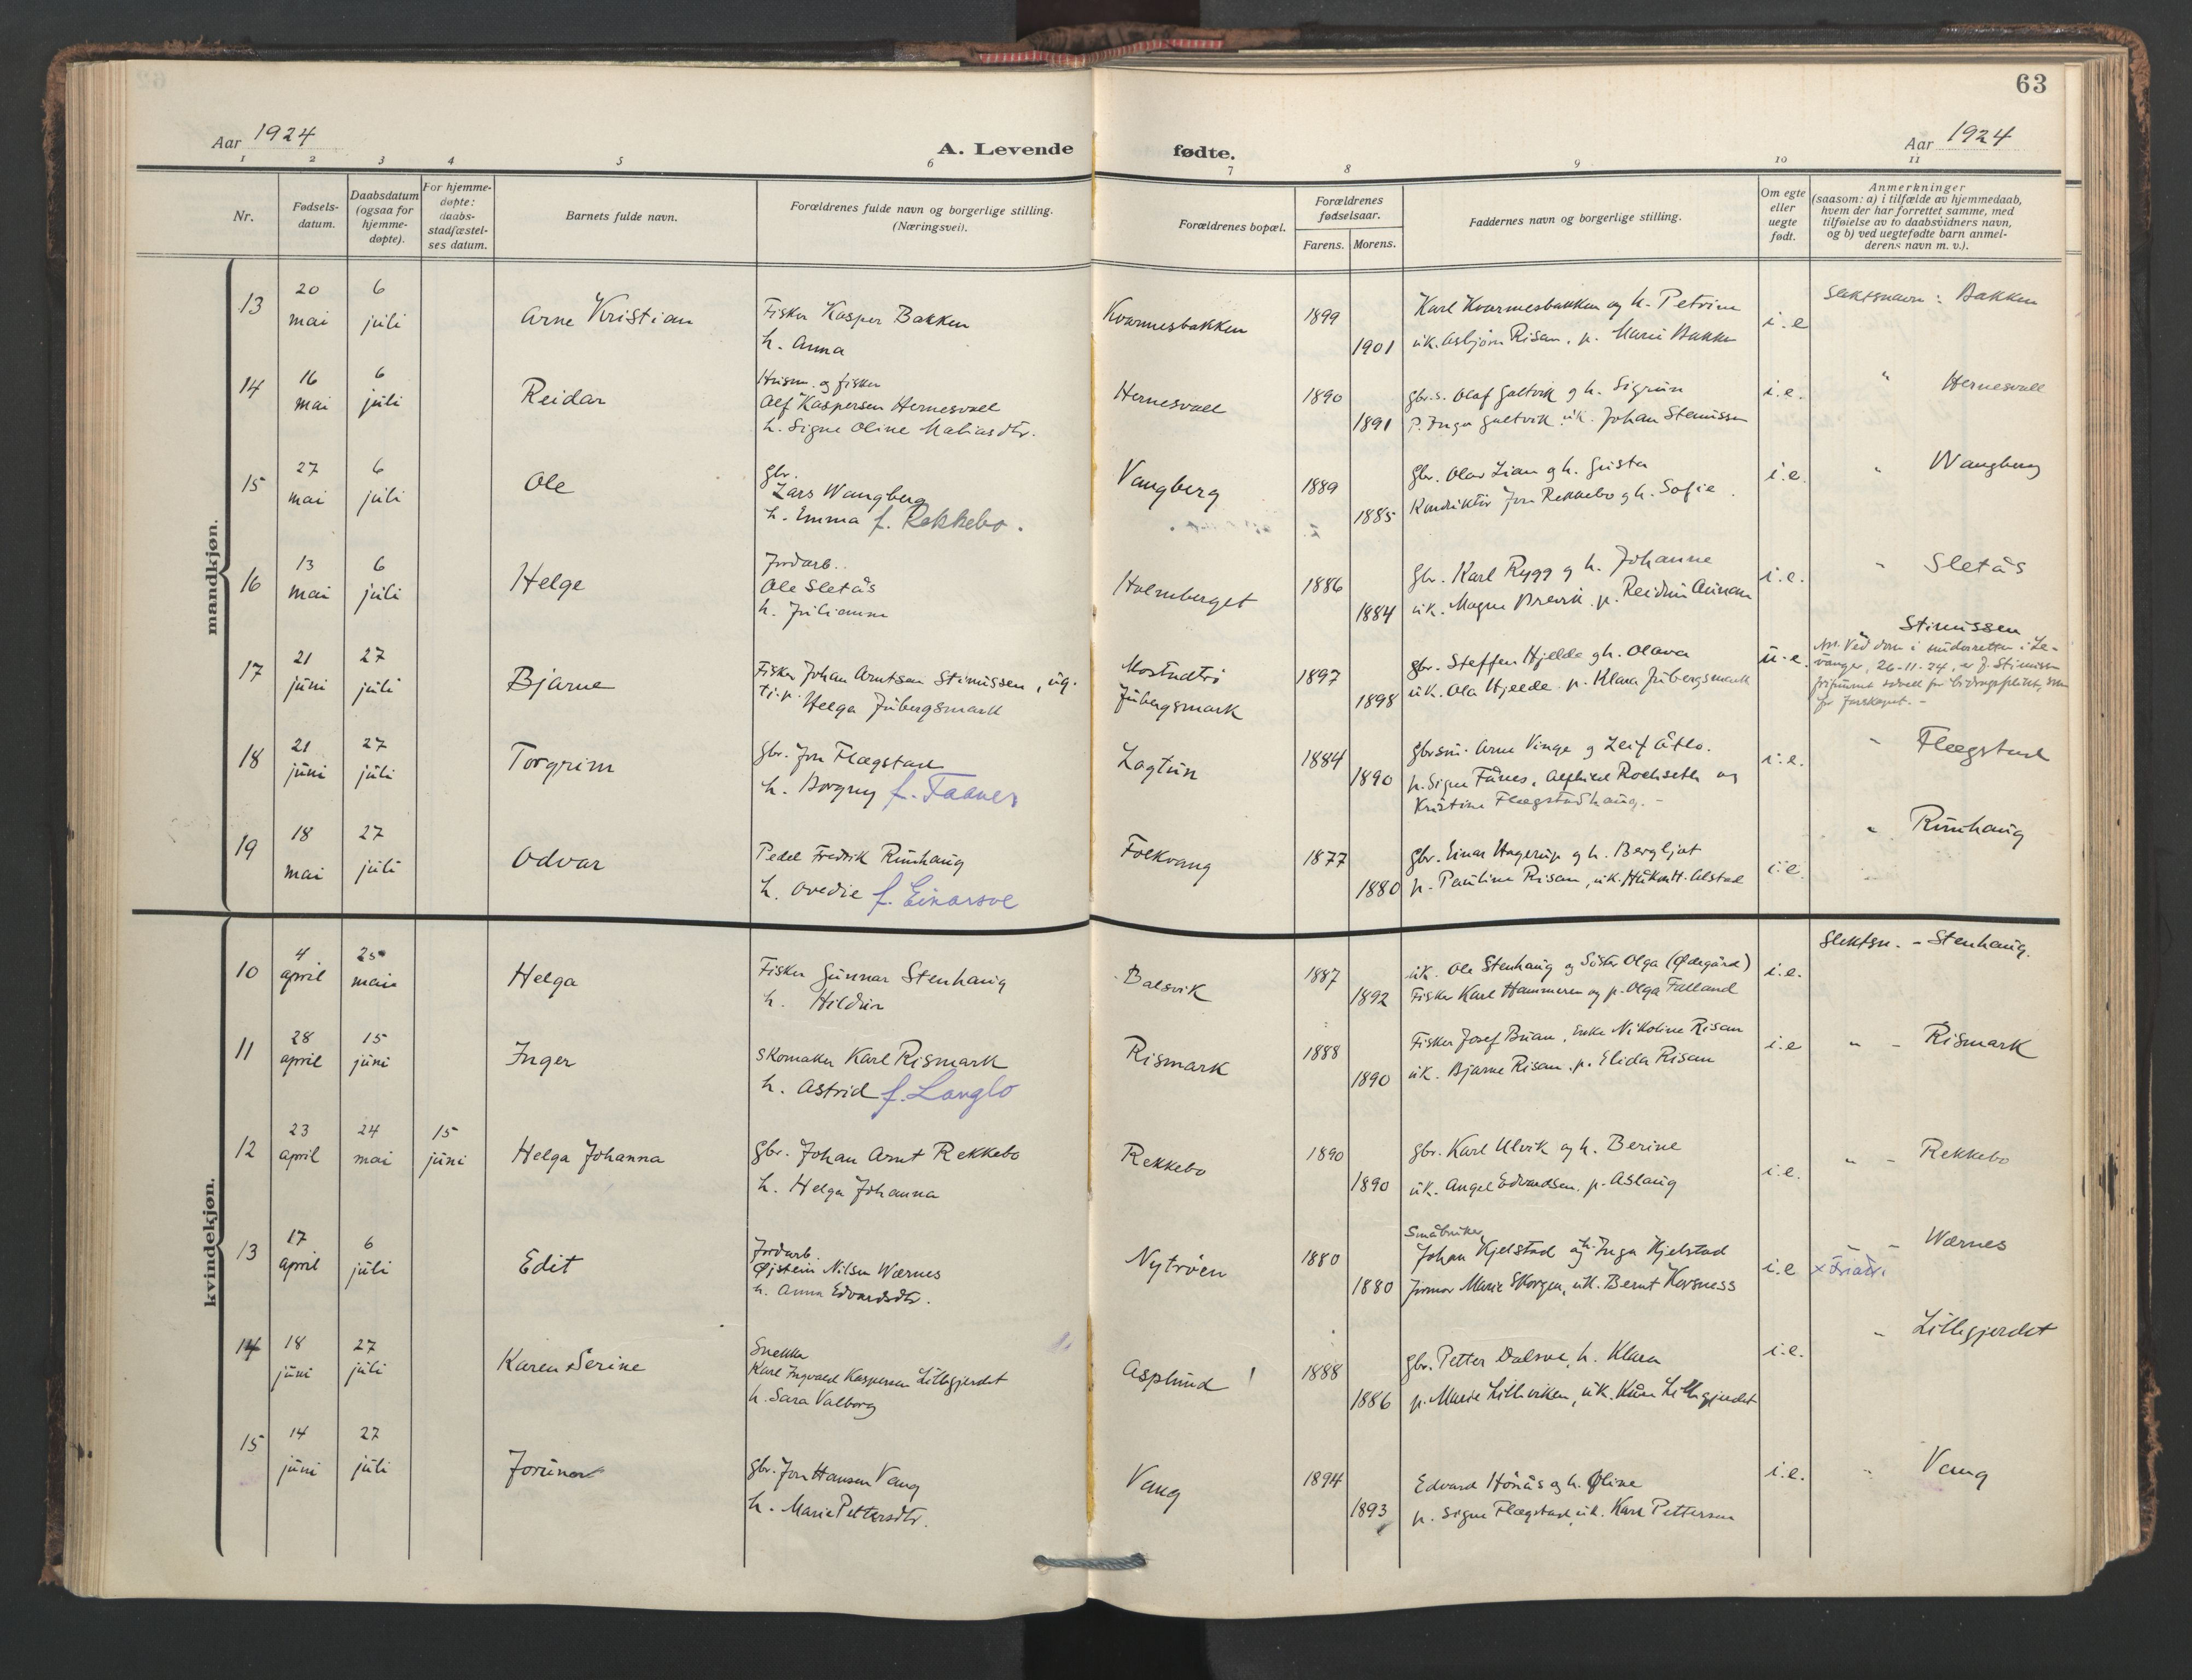 63
Aar 1924
A. Levende fødte.
Aar 1924
1 2 3 4 5 6 7 8 9 10 11
Nr.
Fødsels-
datum.
Daabsdatum
(ogsaa for
hjemme-
døpte).
For hjemme-
døpte:
daabs-
stadfæstel-
ses datum.
Barnets fulde navn.
Forældrenes fulde navn og borgerlige stilling.
(Næringsvei).
Forældrenes bopæl.
Forældrenes
fødselsaar.
Farens. Morens.
Faddernes navn og borgerlige stilling.
Om egte
eller
uegte
født.
Anmerkninger
(saasom: a) i tilfælde av hjemmedaab,
hvem der har forrettet samme, med
tilføielse av to daabsvidners navn,
og b) ved uegtefødte barn anmel-
derens navn m. v.).
mandkjøn.
13 20 mai 6 juli Arne Kristian
Fisker Kasper Bakken
h. Anna
Kvarmesbakken 1899 1901
Karl Kvarmesbakken og h. Petrine
uk. Asbjørn Risan. p. Marie Bakken
i.e
Slektsnavn: Bakken
14 16 mai 6 juli Reidar
Husm. og fisker
Alf Kaspersen Hernesvall
h. Signe Oline Matiasdtr.
Hernesvall 1890 1891
gbr.s. Olaf Galtvik g h. Sigrun
P. Inga Galtvik uk. Johan Stenussen
i.e.
" Hernesvall
15 27 mai 6 juli Ole
gbr.
Lars Wangberg
h. Emma f. Rekkebo.
Vangberg 1889 1885
gbr. Olav Lian g h. Gusta
Konduktør Jon Rekkebo g h. Sofie.
i.e.
" Wangberg
16 13 mai 6 juli Helge
Jordarb.
Ole Sletås
h. Julianne
Holmberget 1886 1884
gbr. Karl Rygg g h. Johanne
uk. Magne Brevik. p. Reidun Aunan
i.e.
" Sletås
17 21 juni 27 juli Bjarne
Fisker Johan Arntsen Stinussen, ug.
tj.p. Helga Jubergsmark
Mostadtrø
Jubergsmark
1897 1898
gbr. Steffen Hjelde g h. Olava
uk. Ola Hjelde. p. Klara Jubergsmark
u.e.
Stinussen
Ved dom i underretten i Le-
vanger, 26-11-24, er J. Stinussen
frifunnet såvel for bidragsplikt, som
for farskapet. -
18 21 juni 27 juli Torgrim
gbr. Jon Flægstad
h. Borgny f. Faanes
Lagtun 1884 1890
gbrsøn. Arne Vinge g Leif Åtlo.
p. Signe Fånes, Alfhild Rochseth og
Kristine Flægstadhaug. -
i.e.
" Flægstad
19 18 mai 27 juli Odvar
Pedel Fredrik Rinnhaug
h. Ovedie f. Einarsve
Folkvang 1877 1880
gbr. Einar Hagerup g h. Bergljot
p. Pauline Risan, uk. Håkon H. Alstad
i.e.
" Rinnhaug
kvindekjøn.
10 4 april 25 mai Helga
Fisker Gunnar Stenhaug
h. Hildur
Balsvik 1887 1892
uk. Ole Stenhaug og Søster Olga (Ødegård)
Fisker Karl Hammeren og p. Olga Falland
i.e.
Slektsn. - Stenhaug.
11 28 april 15 juni Inger
Skomaker Karl Rismark
h. Astrid f. Langlo
Rismark 1888 1890
Fisker Josef Buan, Enke Nikoline Risan
uk. Bjarne Risan. p. Elida Risan
i.e
" - Rismark
12 23 april 24 mai 15 juni Helga Johanna
gbr. Johan Arnt Rekkebo
h. Helga Johanna
Rekkebo 1890 1890
gbr. Karl Ulvik og h. Berine
uk. Angel Edvardsen. p. Aslaug
i.e.
" - Rekkebo
13 17 april 6 juli Edit
Jordarb.
Øjstein Nilsen Wærnes
h. Anna Edvardsdtr.
Nytrøen 1880 1880
Småbruker
Johan Kjelstad og h. Inga Kjelstad
Jormor Marie Skorgen, uk. Bernt Korsness
i.e
- - Wærnes
14 18 juni 27 juli Karen Serine
Snekker
Karl Ingvald Kaspersen Lillegjerdet
h. Sara Valborg
Asplund 1888 1886
gbr. Petter Dalsve, h. Klara
p. Marie Lilleviken, uk. Kåre Lillegjerdet
i.e.
" Lillegjerdet
15 14 juni 27 juli Jorunn
gbr. Jon Hansen Vang
h. Marie Pettersdtr.
Vang 1894 1893
Edvard Hönås og h. Oline
p. Signe Flægstad, uk. Karl Pettersen
i.e.
" Vang